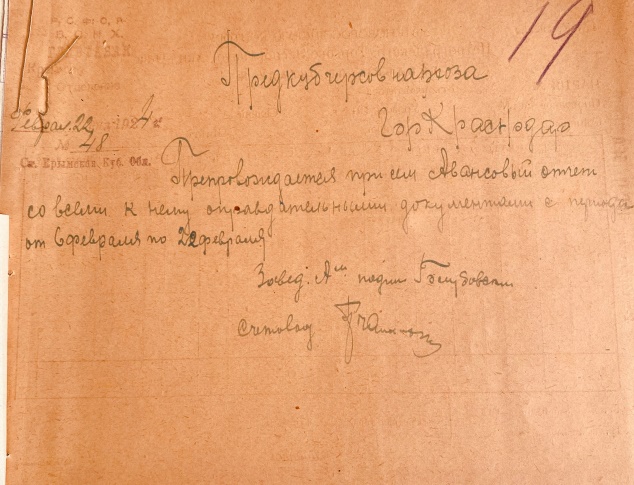 19
Р. С. Ф. С. Р.
В. С. Н. Х.
Предкубчерсовнархоза
Феврал. 22 1924 г.
Гор Краснодар
№ 48
Ст. Крымская, Куб. Обл.
Препровождается при сем Авансовый отчет
со всеми к нему оправдательными документами с периода
от 6 февраля по 22 февраля
Завед.
счетовод